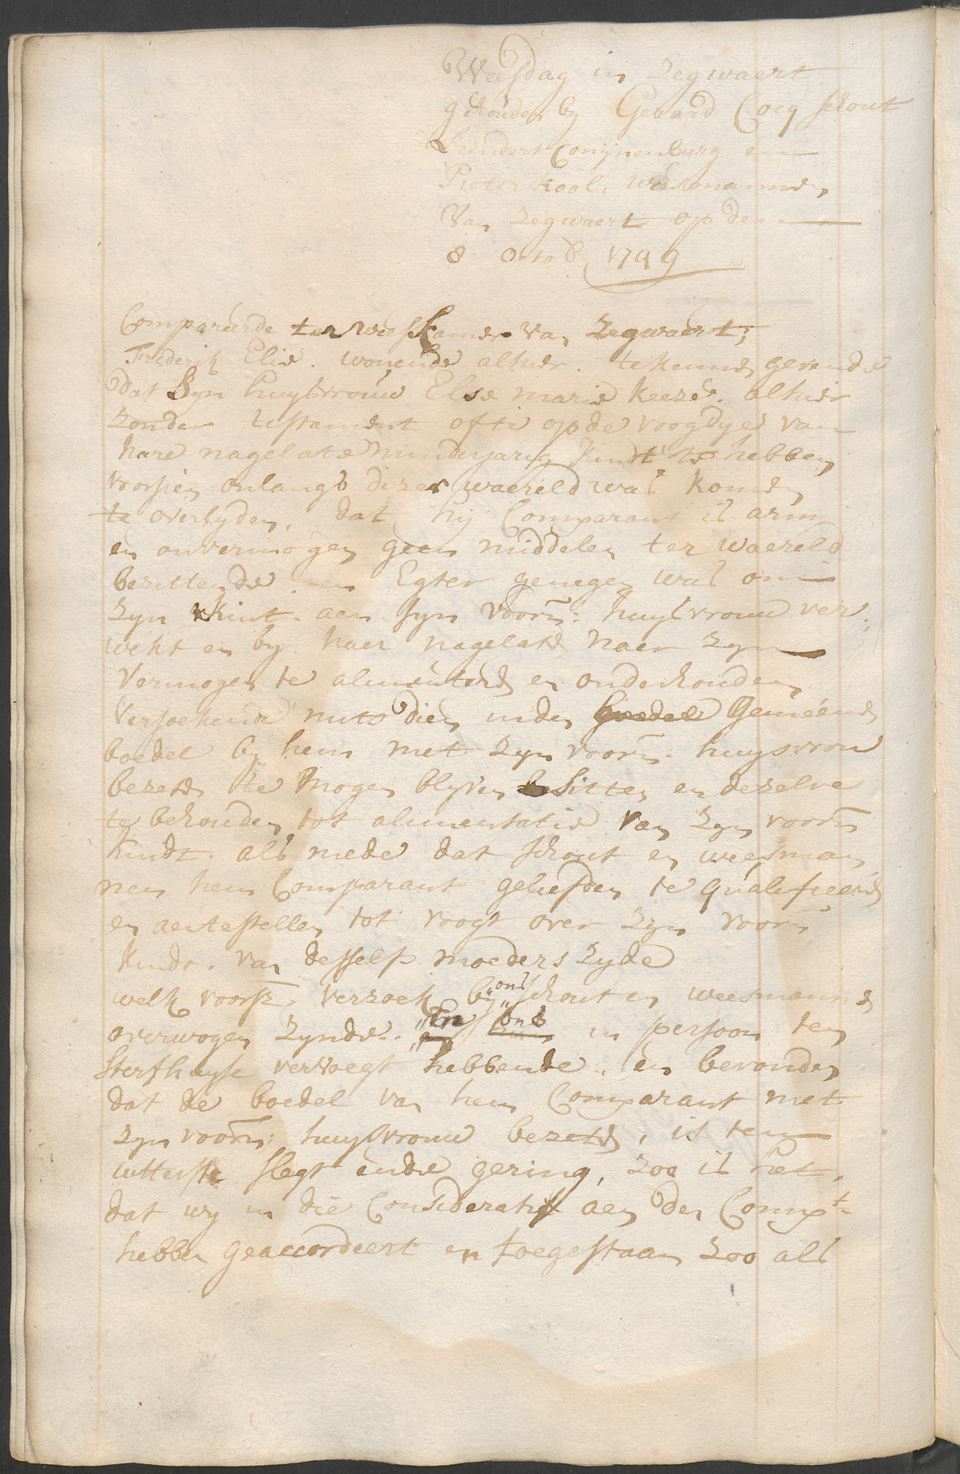 Weesdag in Zegwaert
gehouden bij Gerard Cocq schout
Leendert Conijnenburg en
Pieter Kool, weesmannen,
van Zegwaert op den
8 Octob
Compareerde ter weeskamer van Zegwaert;
Frederik Elie. wonende alhier. te kennen gevende
dat Syn huysvrouw Else marie Keezé. alhier
zonder testament ofte op de voogdye van
hare nagelate minderjarig kindt te hebben
voorsien onlangs dezer waereld was komen
te overlyden, dat hij Comparant is arm
en onvermogen geen middelen ter waereld
besittende en Egter genegen was om
zyn kint aen syn voorn: huysvrouw ver,
wekt en by haer nagelaten naer zyn
vermogen te alimenteren en onderhouden,
versoekende mits dien in den Gemeenen
boedel by hem met zyn voorn. huysvrou
bezeten te mogen blyven besitten en dezelve
te behouden tot alimentatie van zyn voorn
kindt. als mede dat schout en weesman
nen hem Comparant geliefden te qualificeeren
en aen te stellen tot voogt over zyn voorn
kindt. van desselfs moeders zyde
welk voorsz. verzoek by ons schout en weesmannen
overwogen zynde. En ons in persoon ten
sterfhuyse vervoegt hebbende. en bevonden
dat de boedel van hem Comparant met
zyn voorn: huysvrouw bezeten, is ten
uttersten slegt ende gering, zoo is het,
dat wy in die Consideratie aen den Compt
hebben geaccordeert en toegestaan zoo als